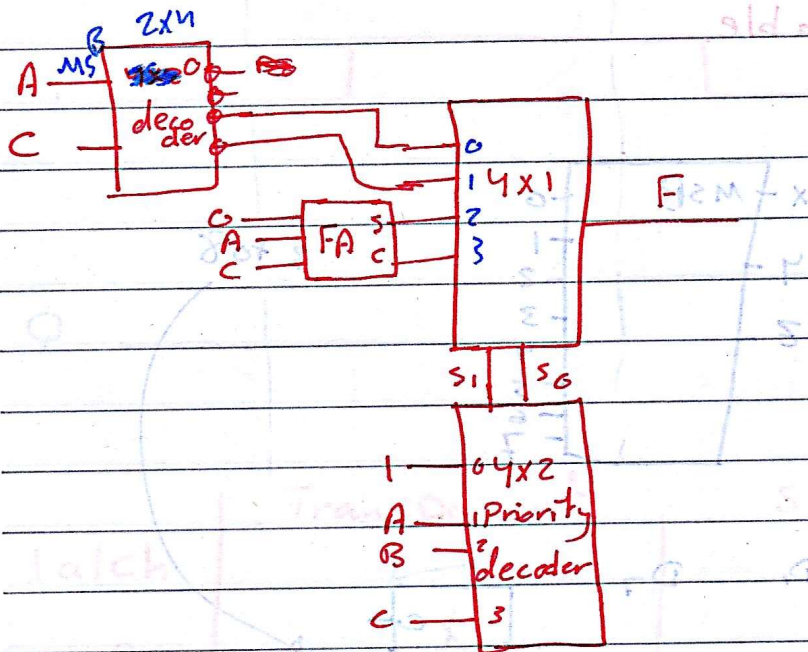 2x4
B
A MS 0
deco
der
C
0
1 4x1
2
3
F
0
A
C
FA
S
C
S1 S0
1 0 4x2
A 1 Priority
B 2 decoder
C 3